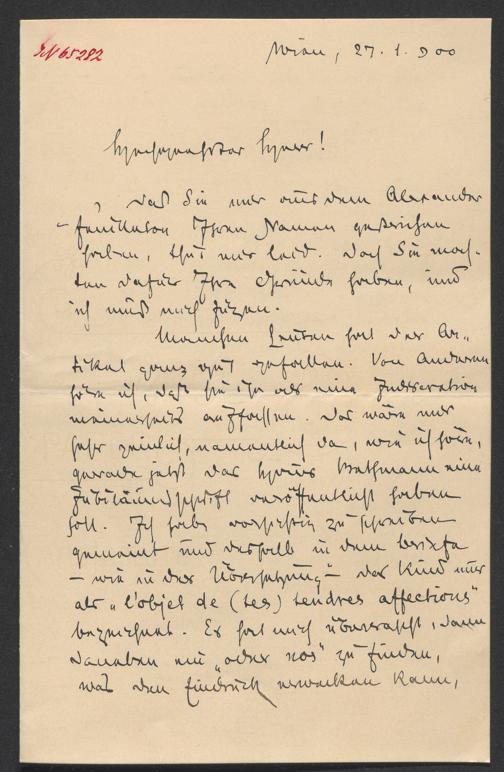 JN 65282
Wien, 27. 1. 900
Hochgeehrter Herr!
Daß Sie mir aus dem Alexander
- feuilleton Ihren Namen gestrichen
haben, thut mir leid. Doch Sie moch-
ten dafür Ihre Gründe haben, und
ich muß mich fügen.
Manchen Leuten hat der Ar-
tikel ganz gut gefallen. Von Anderen
höre ich, daß sie ihn als eine Indiscretion
meinerseits auffassen. Das wäre mir
sehr peinlich, namentlich da, wie ich höre,
gerade jetzt das Haus Bethmann eine
Jubiläumsschrift veröffentlicht haben
soll. Ich habe vorsichtig zu schreiben
gemeint und deshalb in dem Briefe
- wie in der Übersetzung - das Kind nur
als "l'objet de (tes) tendres affections"
bezeichnet. Es hat mich überrascht, dann
daneben ein "oder nos" zu finden,
was den Eindruck erwecken kann,